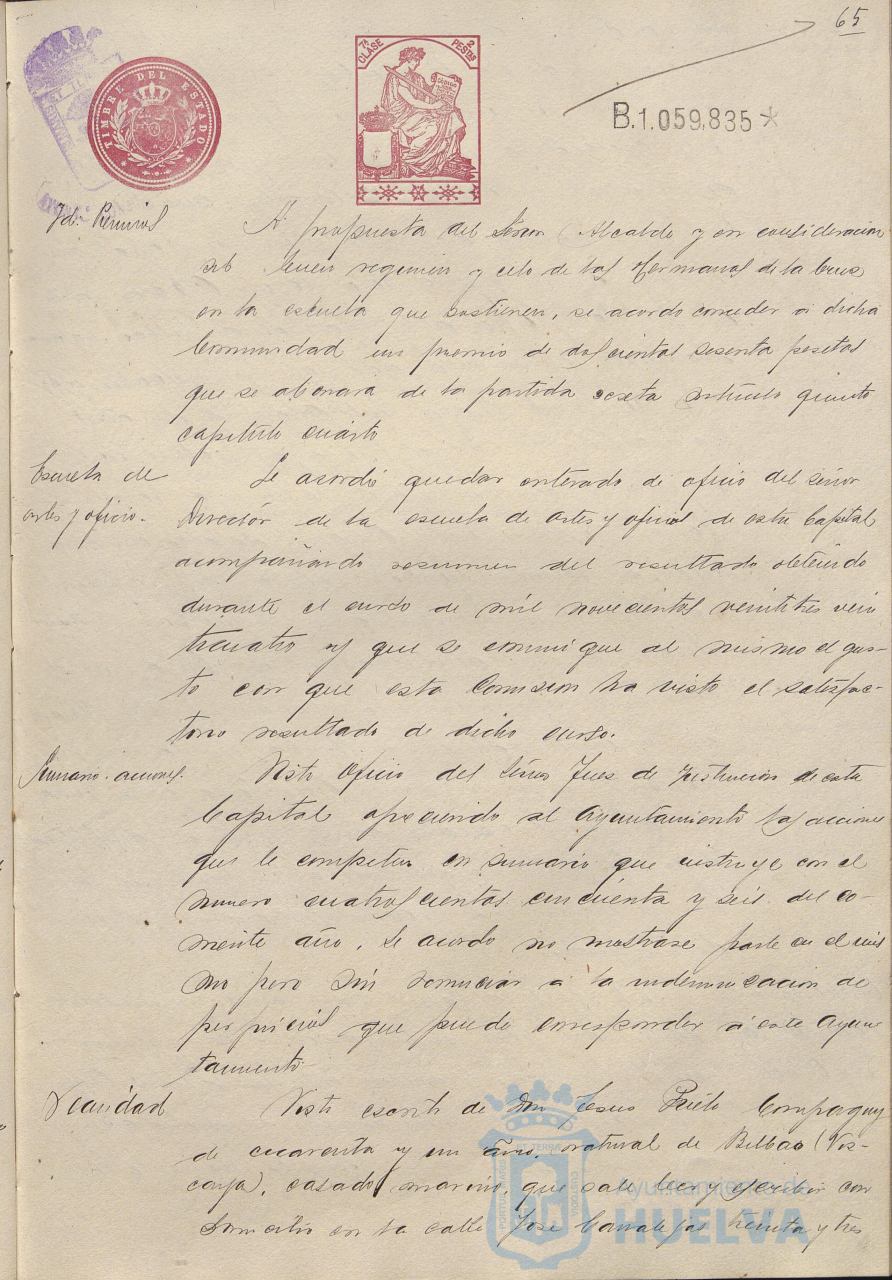 65
TIMBRE DEL ESTADO
7ª CLASE 2 PESTAS
B.1.059.835
Id. Premios
A propuesta del Señor Alcalde y en consideracion
al buen regimen y celo de las Hermanas de la Cruz
en la escuela que sostienen, se acordo conceder a dicha
Comunidad un premio de doscientas sesenta pesetas
que se abonara de la partida sexta articulo quinto
capitulo cuarto
Escuela de
artes y oficio.
Se acordó quedar enterado de oficio del señor
Director de la escuela de artes y oficios de esta Capital
acompañando resumen del resultado obtenido
durante el curso de mil novecientos veintitres vein
ticuatro y que se comunique al mismo el gus-
to con que esta Comision ha visto el satisfac-
torio resultado de dicho curso.
Sumario. acciones.
Visto oficio del Señor Juez de Instrucion de esta
Capital ofreciendo al Ayuntamiento las acciones
que le competen en sumario que instruye con el
numero cuatrocientos cincuenta y seis del co-
rriente año, se acordo no mostrase parte en el mis
mo pero sin renunciar a la indemnizacion de
perjuicios que puede corresponder a este Ayun
tamiento
Vecindad
Visto escrito de Don Jesus Prieto Compaguy
de cuarenta y un año, natural de Bilbao (Viz-
caya), casado, marino, que sabe leer y escribir con
domicilio en la calle Jose Canalejas treinta y tres
Ayuntamiento de
HUELVA